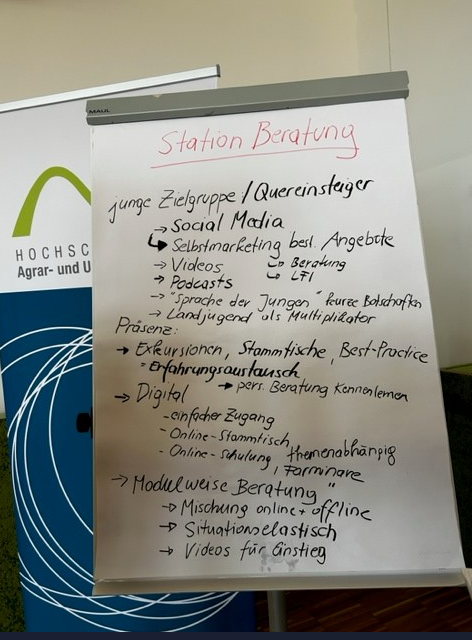 MAUL
HOCHSC
Agrar- und U
Station Beratung
junge Zielgruppe / Quereinsteiger
→ Social Media
↳ Selbstmarketing best. Angebote
→ Videos ↳ Beratung
→ Podcasts ↳ LFI
→ "Sprache der Jungen" kurze Botschaften
→ Landjugend als Multiplikator
Präsenz:
→ Exkursionen, Stammtische, Best-Practice
" Erfahrungsaustausch
→ pers. Beratung kennenlernen
→ Digital
- einfacher Zugang
- Online-Stammtisch
- Online-Schulung, themenabhängig
, Farminare
→ Modulweise Beratung"
→ Mischung online + offline
→ Situationselastisch
→ Videos für Einstieg